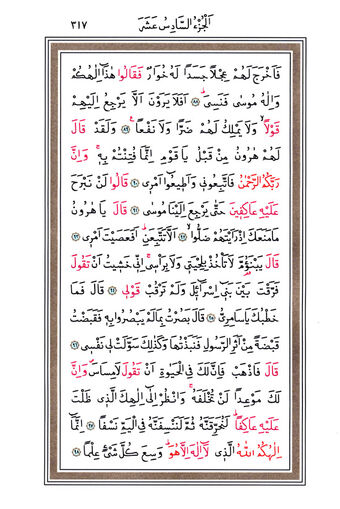 اَلْجُزْءُ السَّادِسُ عَشَرَ ٣١٧
فَاَخْرَجَ لَهُمْ عِجْلًا جَسَدًا لَهُ خُوَارٌ فَقَالُوا هٰذَٓا اِلٰهُكُمْ
وَاِلٰهُ مُوسٰى فَنَسِيَ ﴿٨٨﴾ اَفَلَا يَرَوْنَ اَلَّا يَرْجِعُ اِلَيْهِمْ
قَوْلًا وَلَا يَمْلِكُ لَهُمْ ضَرًّا وَلَا نَفْعًا ﴿٨٩﴾ وَلَقَدْ قَالَ
لَهُمْ هٰرُونُ مِنْ قَبْلُ يَا قَوْمِ اِنَّمَا فُتِنْتُمْ بِهِ وَاِنَّ
رَبَّكُمُ الرَّحْمٰنُ فَاتَّبِعُونِي وَاَطِيعُٓوا اَمْرِي ﴿٩٠﴾ قَالُوا لَنْ نَبْرَحَ
عَلَيْهِ عَاكِفِينَ حَتّٰى يَرْجِعَ اِلَيْنَا مُوسٰى ﴿٩١﴾ قَالَ يَا هٰرُونُ
مَا مَنَعَكَ اِذْ رَاَيْتَهُمْ ضَلُّوا ﴿٩٢﴾ اَلَّا تَتَّبِعَنِ اَفَعَصَيْتَ اَمْرِي ﴿٩٣﴾
قَالَ يَبْنَؤُمَّ لَا تَأْخُذْ بِلِحْيَتِي وَلَا بِرَأْسِي اِنِّي خَشِيتُ اَنْ تَقُولَ
فَرَّقْتَ بَيْنَ بَنِٓي اِسْرَٓائِيلَ وَلَمْ تَرْقُبْ قَوْلِي ﴿٩٤﴾ قَالَ فَمَا
خَطْبُكَ يَا سَامِرِيُّ ﴿٩٥﴾ قَالَ بَصُرْتُ بِمَا لَمْ يَبْصُرُوا بِهِ فَقَبَضْتُ
قَبْضَةً مِنْ اَثَرِ الرَّسُولِ فَنَبَذْتُهَا وَكَذٰلِكَ سَوَّلَتْ لِي نَفْسِي ﴿٩٦﴾
قَالَ فَاذْهَبْ فَاِنَّ لَكَ فِي الْحَيٰوةِ اَنْ تَقُولَ لَا مِسَاسَ وَاِنَّ
لَكَ مَوْعِدًا لَنْ تُخْلَفَهُ وَانْظُرْ اِلٰٓى اِلٰهِكَ الَّذِي ظَلْتَ
عَلَيْهِ عَاكِفًا لَنُحَرِّقَنَّهُ ثُمَّ لَنَنْسِفَنَّهُ فِي الْيَمِّ نَسْفًا ﴿٩٧﴾ اِنَّمَٓا
اِلٰهُكُمُ اللّٰهُ الَّذِي لَٓا اِلٰهَ اِلَّا هُوَ وَسِعَ كُلَّ شَيْءٍ عِلْمًا ﴿٩٨﴾